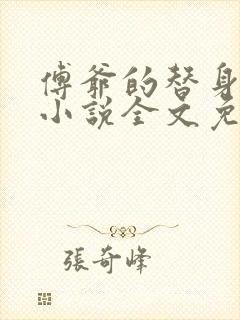 傅爷的替身
小说全文免
張奇峰